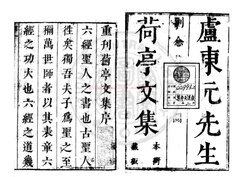 盧東元先生
荷亭文集
本衙
藏板
重刊荷亭文集序
六經聖人之書也古聖人
徃矣獨吾夫子為聖之至
穪萬世師者以其表章六
經之功大也六經之道幾